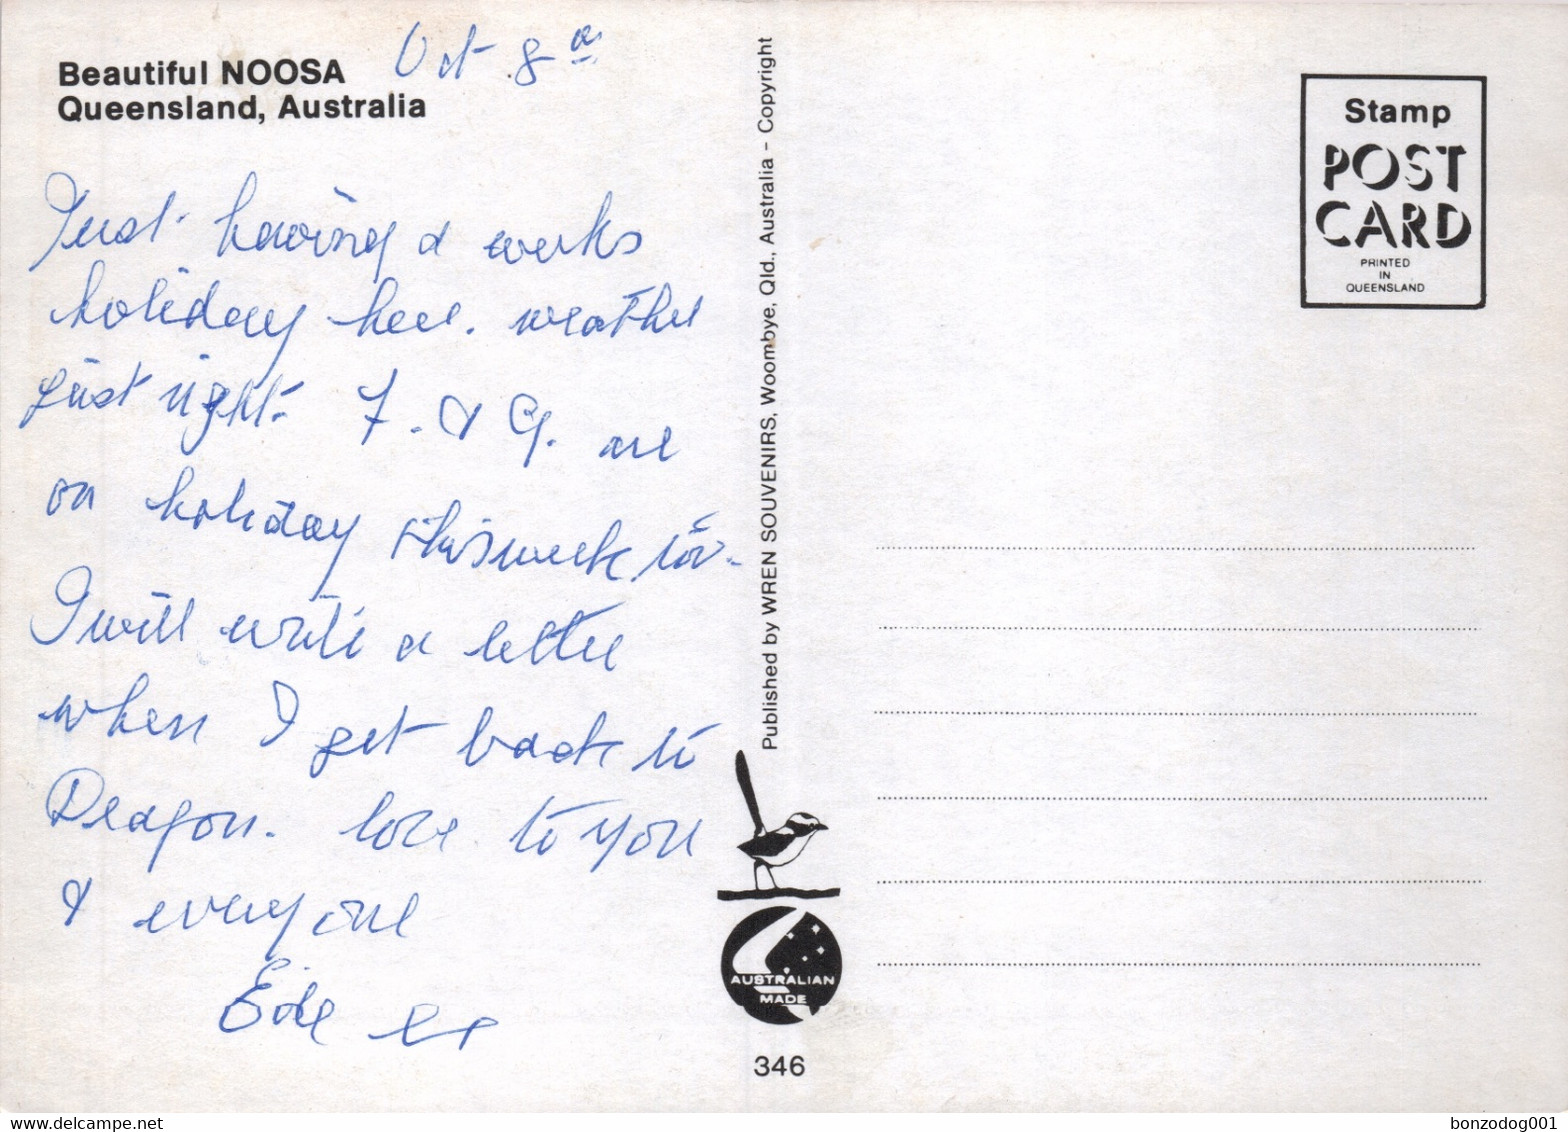 Beautiful NOOSA
Queensland, Australia
Oct 8
Just having a weeks
holiday here. weather
just right. F. & G. are
on holiday this week too.
I will write a letter
when I get back to
Dragon. love to you
& everyone
Edie
Published by WREN SOUVENIRS, Woombye, Qld., Australia – Copyright
AUSTRALIAN
MADE
346
Stamp
POST
CARD
PRINTED
IN
QUEENSLAND
bonzodog001